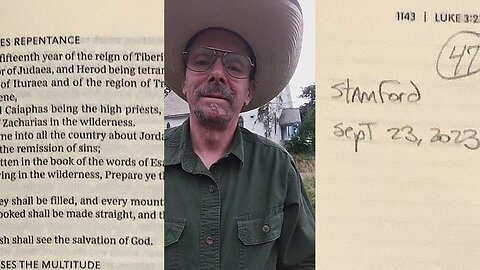 ES REPENTANCE
fifteenth year of the reign of Tiberi
or of Judaea, and Herod being tetrar
of Ituraea and of the region of Tr
ene,
d Caiaphas being the high priests,
f Zacharias in the wilderness.
me into all the country about Jorda
the remission of sins;
tten in the book of the words of Esa
ying in the wilderness, Prepare ye th
ey shall be filled, and every mount
ooked shall be made straight, and th
sh shall see the salvation of God.
SES THE MULTITUDE
1143 | LUKE 3:2
47
Stamford
Sept 23, 2023